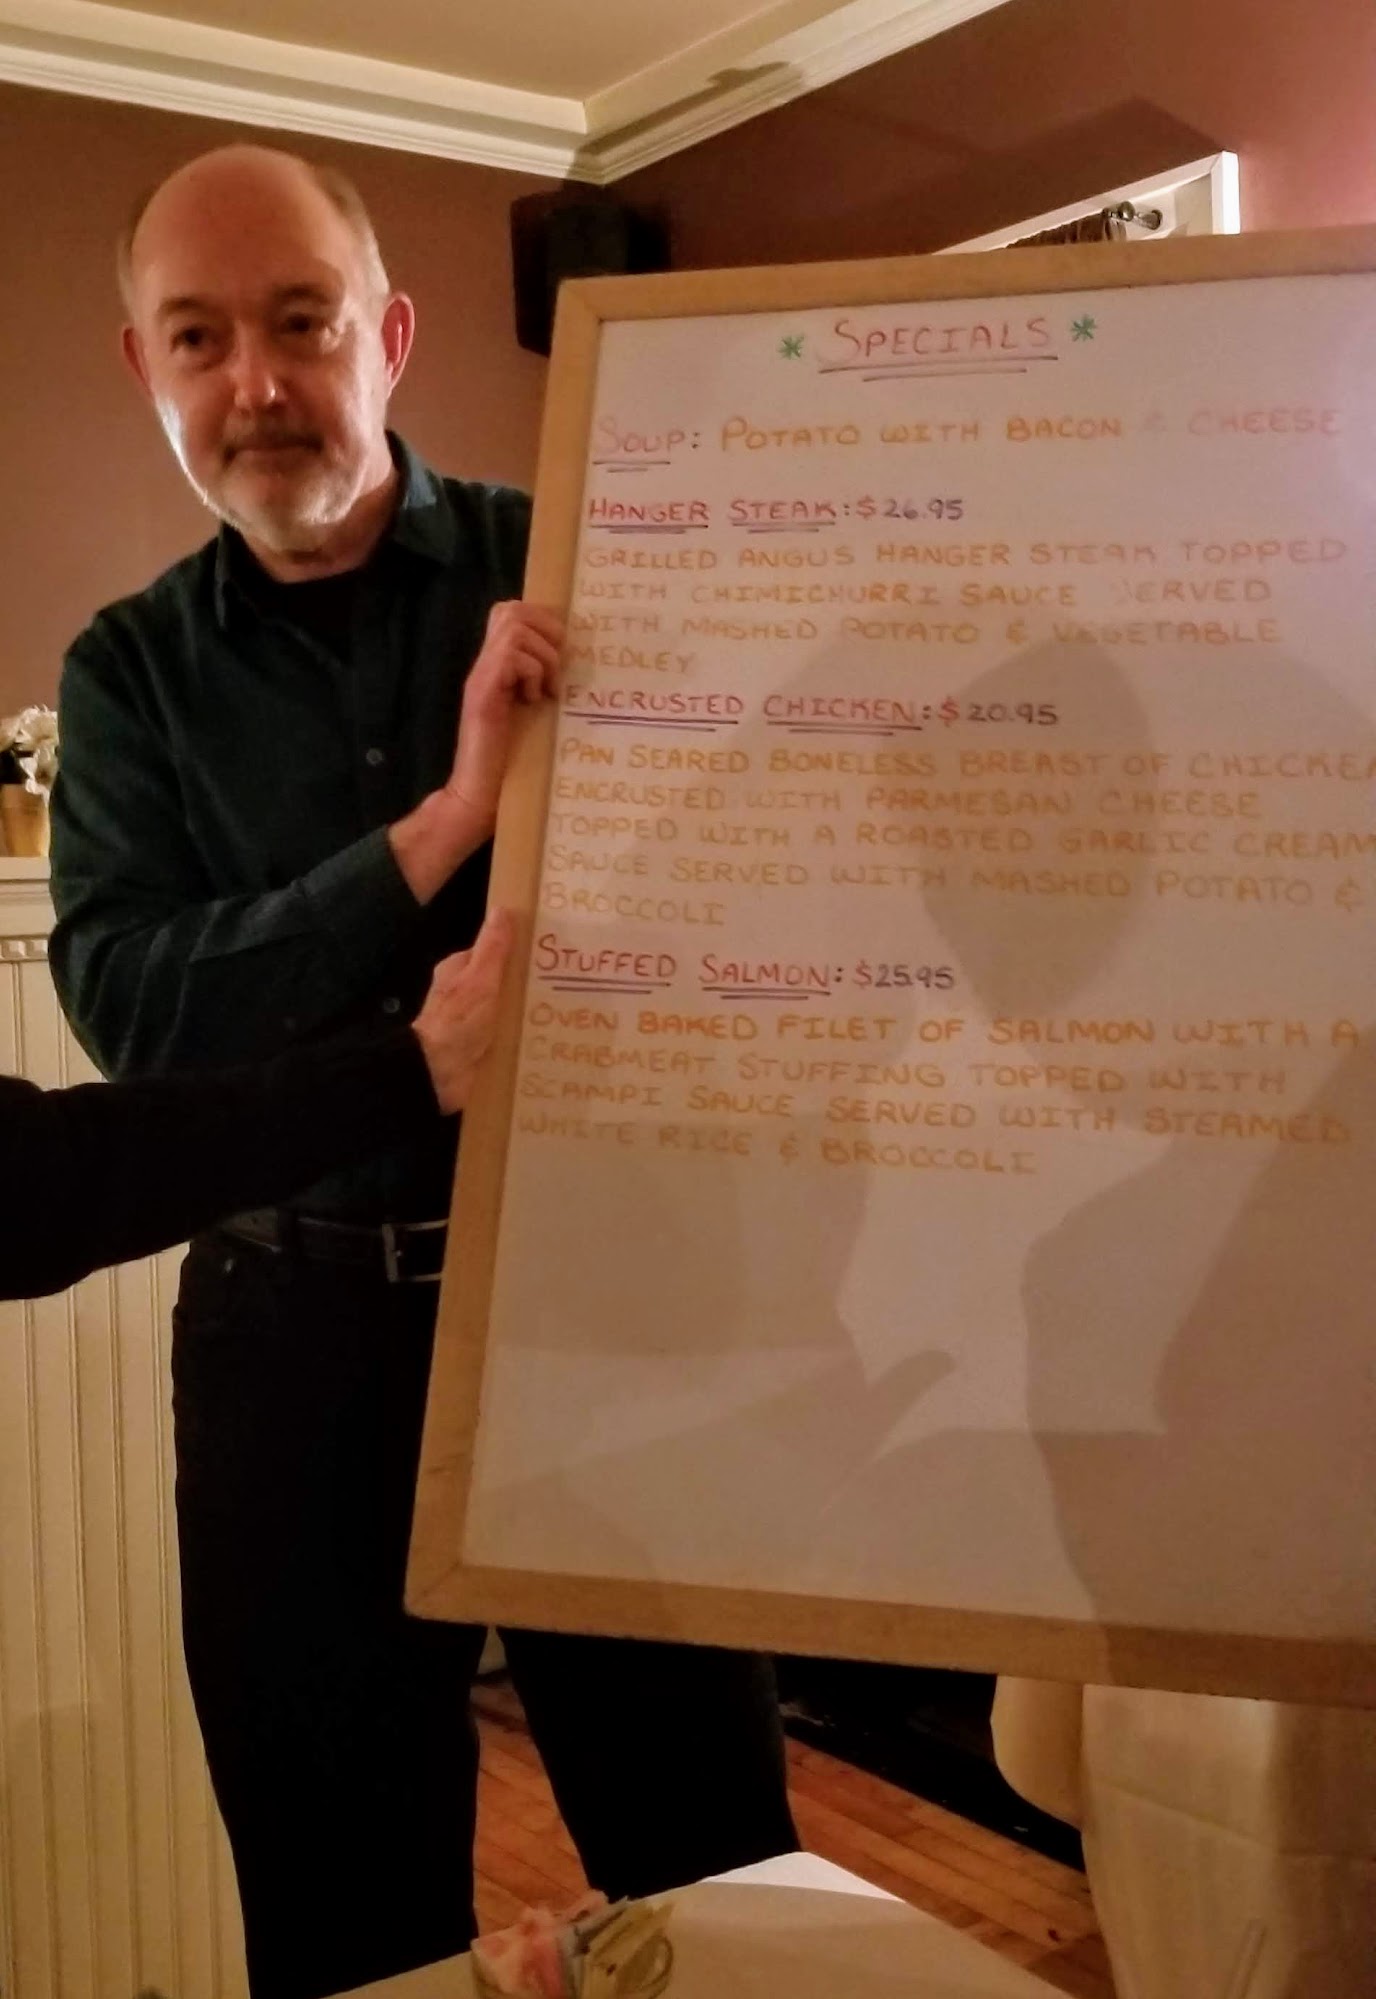 * SPECIALS *
SOUP: POTATO WITH BACON & CHEESE
HANGER STEAK: $26.95
GRILLED ANGUS HANGER STEAK TOPPED
WITH CHIMICHURRI SAUCE SERVED
WITH MASHED POTATO & VEGETABLE
MEDLEY
ENCRUSTED CHICKEN: $20.95
PAN SEARED BONELESS BREAST OF CHICKEN
ENCRUSTED WITH PARMESAN CHEESE
TOPPED WITH A ROASTED GARLIC CREAM
SAUCE SERVED WITH MASHED POTATO &
BROCCOLI
STUFFED SALMON: $25.95
OVEN BAKED FILET OF SALMON WITH A
CRABMEAT STUFFING TOPPED WITH
SCAMPI SAUCE SERVED WITH STEAMED
WHITE RICE & BROCCOLI